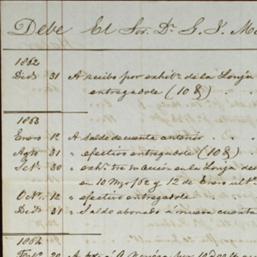 Debe El Sor. Dr. G. Y. M
1862
Dic. 31 A recibo por exhibn. de la Lonja
entregadole (10 &)
1863
Enero 12 A saldo de cuenta anterior
Agto 31 " efectivo entregadole (10 &)
Set. 30 " exhn. tra acción en la Lonja de
en 10 Mzo/62 y 12 de Enero ult.
Octe. 12 " efectivo entregadole
Dic. 31 Saldo abonado a nueva cuenta
1864